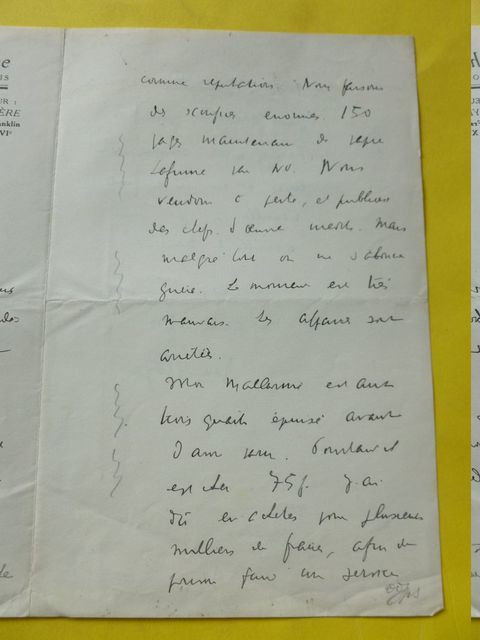 comme réputation. Nous faisons
des sacrifices énormes. 150
pages maintenant de papier
Lafuma par No. Nous
vendons à perte, et publions
des chefs d'œuvre inédits. Mais
malgré tout on ne s'abonne
guère. Le moment est très
mauvais. Les affaires sont
arrêtées.
Mon Mallarmé est aux
trois quarts épuisé avant
d'avoir paru. Pourtant il
est cher 75f. J'ai
dû en acheter pour plusieurs
milliers de francs, afin de
pouvoir faire un service